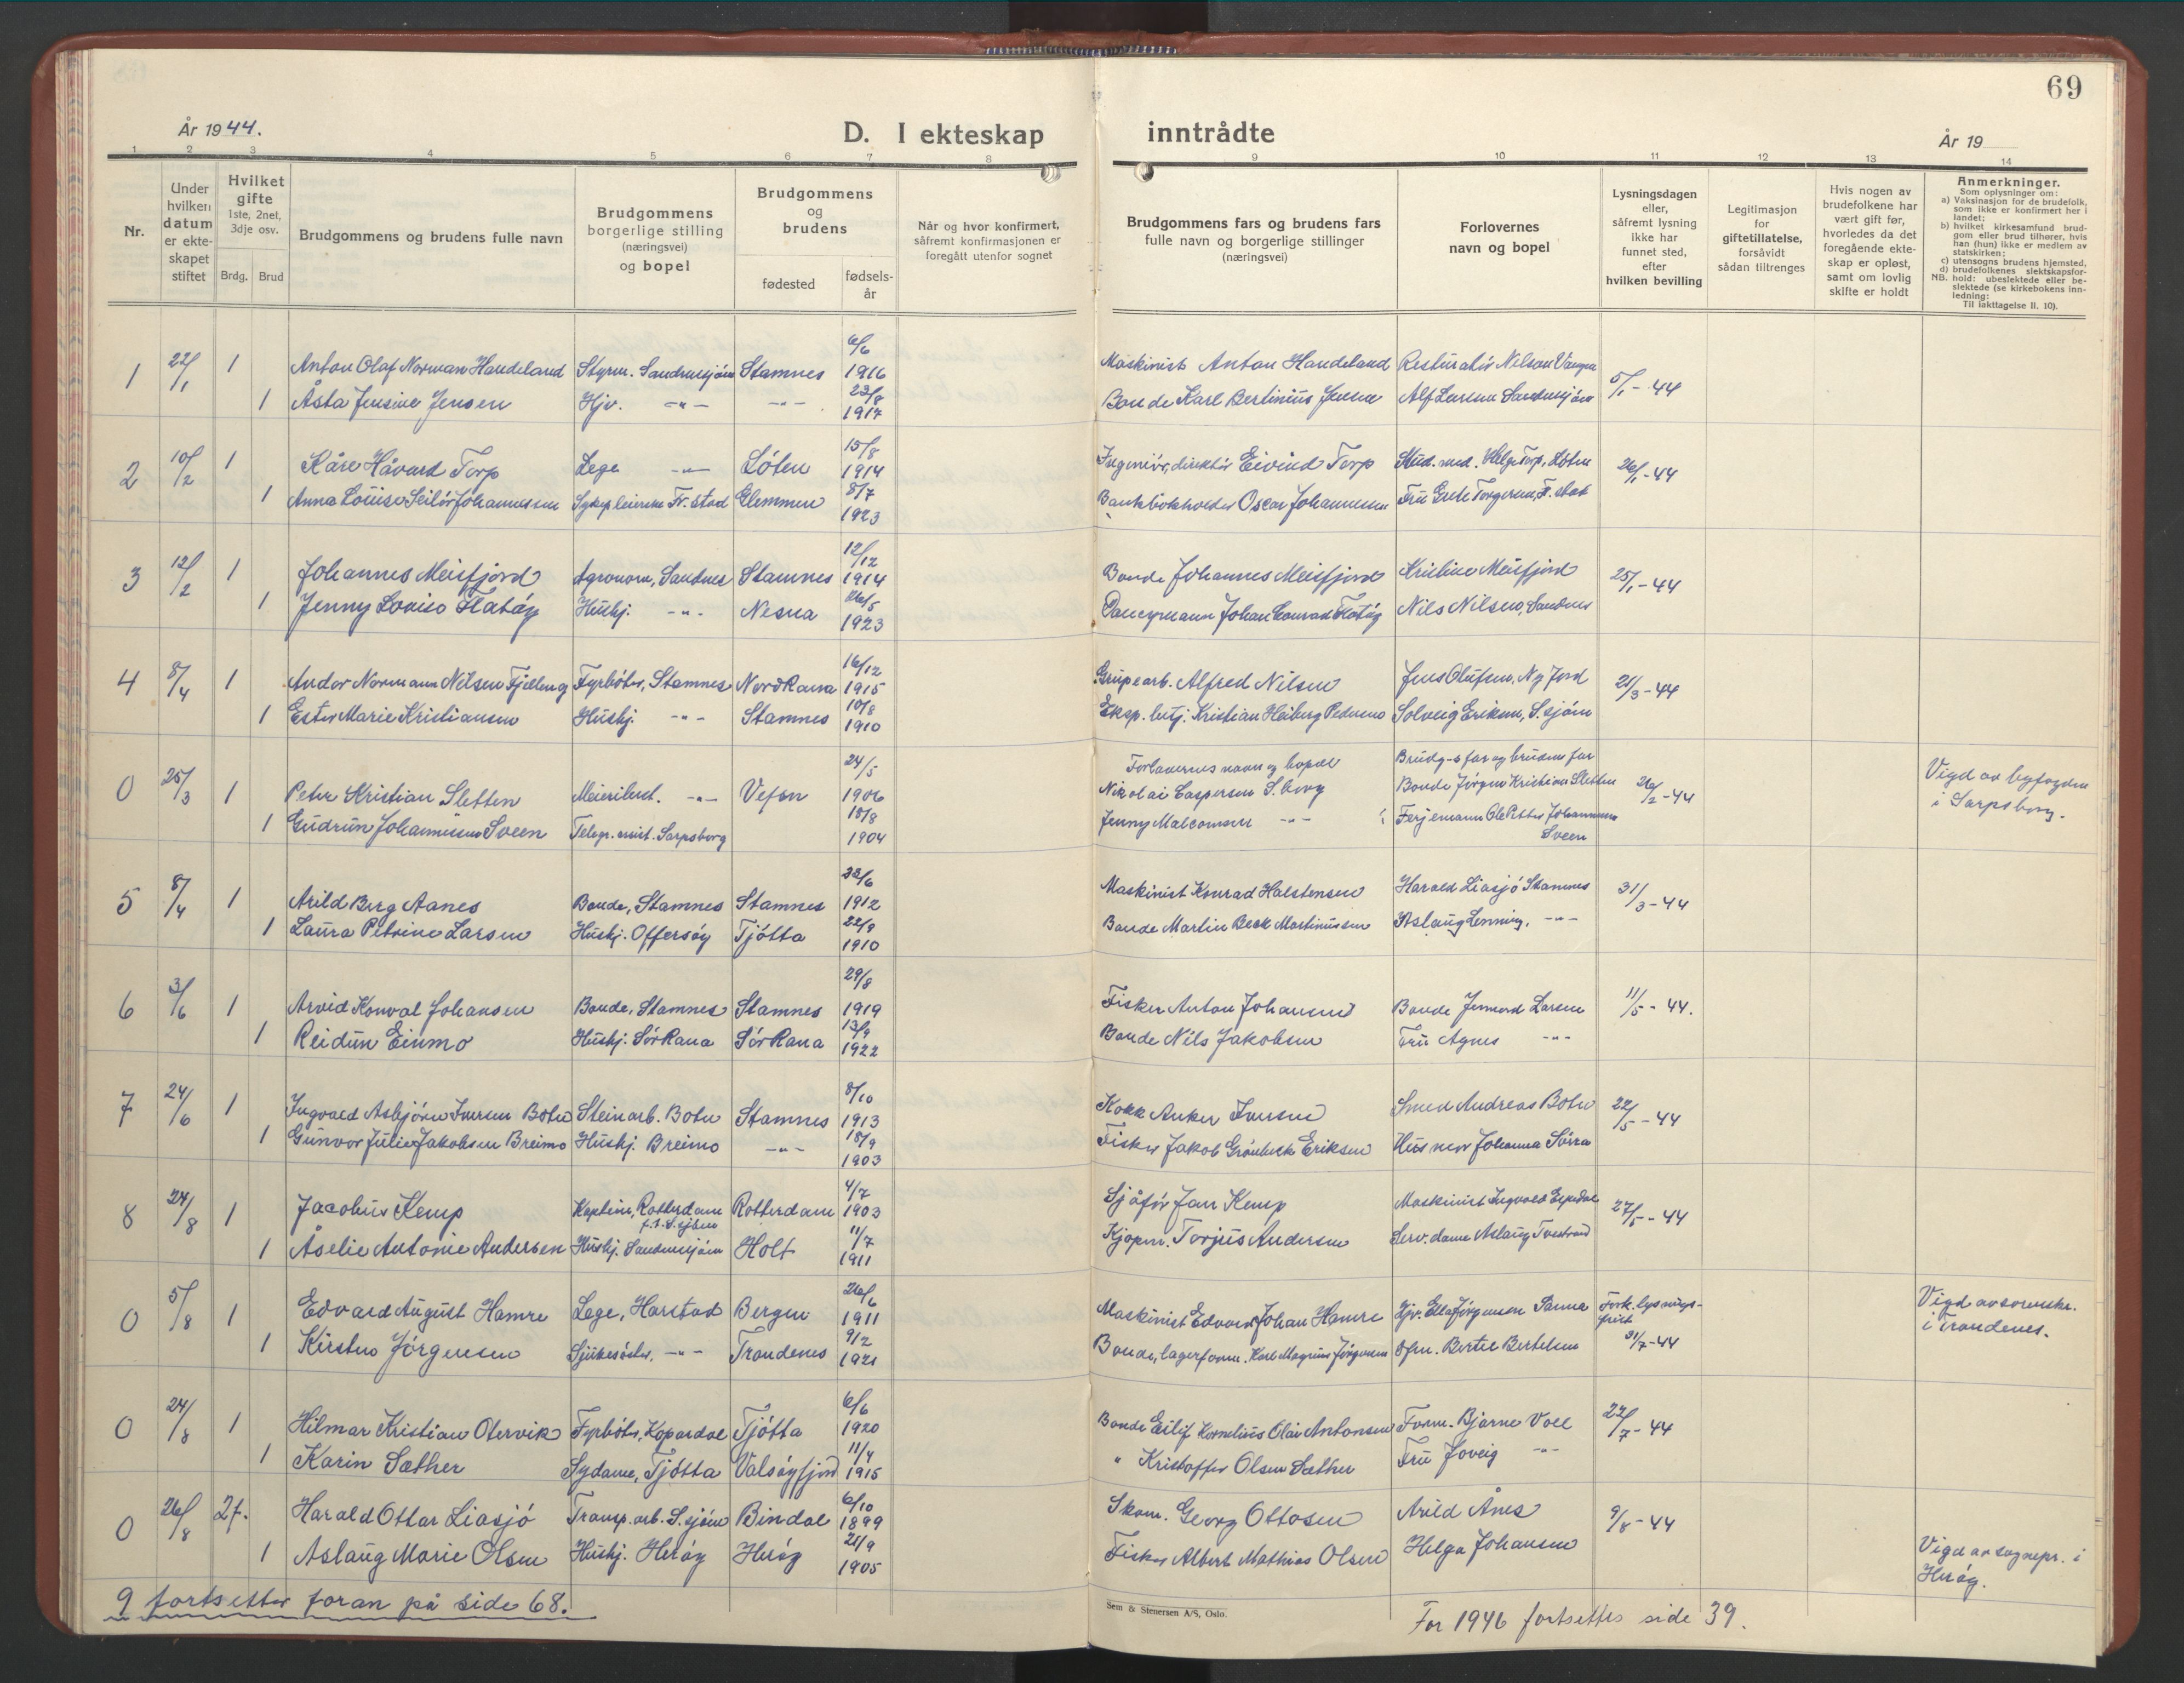 69
År 1944.
D. I ekteskap inntrådte
År 19
1 2 3 4 5 6 7 8 9 10 11 12 13 14
Nr.
Under hvilken datum er ekteskapet stiftet
Hvilket gifte 1ste, 2net, 3dje osv.
Brdg. Brud
Brudgommens og brudens fulle navn
Brudgommens borgerlige stilling (næringsvei) og bopel
Brudgommens og brudens
fødested
fødsels-år
Når og hvor konfirmert, såfremt konfirmasjonen er foregått utenfor sognet
Brudgommens fars og brudens fars fulle navn og borgerlige stillinger (næringsvei)
Forlovernes navn og bopel
Lysningsdagen eller, såfremt lysning ikke har funnet sted, efter hvilken bevilling
Legitimasjon for giftetillatelse, forsåvidt sådan tiltrenges
Hvis nogen av brudefolkene har vært gift før, hvorledes da det foregående ekteskap er opløst, samt om lovlig skifte er holdt
Anmerkninger.
Som oplysninger om:
a) Vaksinasjon for de brudefolk, som ikke er konfirmert her i landet;
b) hvilket kirkesamfund brudgom eller brud tilhører, hvis han (hun) ikke er medlem av statskirken;
c) utensogns brudens hjemsted,
d) brudefolkenes slektskapsforhold: ubeslektede eller beslektede (se kirkebokens innledning:
NB.
Til iakttagelse II. 10).
1 22/1 1 Anton Olaf Norman Handeland Styrm. Sandnessjøen Stamnes 6/6 1916 Maskinist Anton Handeland 5/1-44
1 Åsta Jensine Jensen Hjv. -"- -"- 23/8 1917 Bonde Karl Bertinius Jensen Alf Larsen Sandnessjøen
2 10/2 1 Kåre Håvard Torp Lege -"- Løten 15/8 1914 Ingeniør, direktør Eivind Torp Stud. med. Helge Torp, Løten 26/1-44
1 Anna Louise Johannessen Sykepleierske Fr.stad Glemmen 8/7 1923 Bankbokholder Oscar Johannessen Fru Grete Torgersen, F.stad
3 12/2 1 Johannes Meisfjord Agronom, Sandnes Stamnes 12/12 1914 Bonde Johannes Meisfjord Kristine Meisfjord 25/1-44
1 Jenny Lovise Flatøy Hushj. -"- Nesna 26/5 1923 Johan Conrad Flatøy Nils Nilsen, Sandnes
4 8/4 1 Andor Normann Nilsen Fjelleng Fyrbøter, Stamnes Nord Rana 16/12 1915 Grupearb. Alfred Nilsen Jens Olufsen, Ny Jord 21/3-44
1 Ester Marie Kristiansen Hushj. -"- Stamnes 10/8 1910 Eksp. betj. Kristian Heiberg Pedersen Solveig Eriksen, S.sjøen
0 25/3 1 Peter Kristian Sletten Meieribest. -"- Vefsn 24/5 1906 Forlovernes navn og bopel Brudg-s far og brudens far
Nikolai Caspersen S.borg Bonde Jørgen Kristian Sletten 26/2-44 Vigd av byfogden i Sarpsborg.
1 Gudrun Johannessen Sveen Telegr. assist. Sarpsborg 18/8 1904 Jenny Malcomsen -"- Ferjemann Ole Petter Johannessen Sveen
5 8/4 1 Arild Berg Aanes Bonde, Stamnes Stamnes 22/6 1912 Maskinist Konrad Halstensen Harald Liasjø Stamnes 31/3-44
1 Laura Petrine Larsen Hushj. Offersøy Tjøtta 22/9 1910 Bonde Martin Beck Martinussen Aslaug Lenning, -"-
6 3/6 1 Arvid Konval Johansen Bonde, Stamnes Stamnes 29/8 1919 Fisker Anton Johansen Bonde Larsen 11/5-44.
1 Reidun Einmo Hushj. Sør Rana Sør Rana 13/9 1922 Bonde Nils Jakobsen Fru Agnes -"-
7 24/6 1 Ingvald Asbjørn Iversen Botn Steinarb. Botn Stamnes 8/10 1913 Kokk Anker Iversen Smed Andreas Botn 22/5-44
1 Gunvor Julie Jakobsen Breimo Hushj. Breimo -"- 18/9 1903 Fisker Jakob Grønbeck Eriksen Husmor Johanna Sørra
8 24/8 1 Jacobus Kemp Kaptein, Rotterdam f.t. S.sjøen Rotterdam 4/7 1903 Sjåfør Jan Kemp Maskinist Ingvald 27/5-44
1 Åselie Antonie Andersen Hushj. Sandnessjøen Holt 11/7 1911 Kjøpm. Torjus Andersen Serv. dame Aslaug
0 5/8 1 Edvard August Hamre Lege, Harstad Bergen 26/6 1911 Maskinist Edvard Johan Hamre Hjv. Ella Jørgensen Sanna Fork. lysningsfrist 31/7-44 Vigd av sorenskr. i Trondenes.
1 Kirsten Jørgensen Sjukesøster, -"- Trondenes 9/2 1921 Bonde, lagerform. Karl Magnus Jørgensen Ofm. Bertel Bertelsen
0 24/8 1 Hilmar Kristian Otervik Fyrbøter, Kopardal Tjøtta 6/6 1920 Bonde Eilif Kornelius Olai Antonsen Form. Bjarne Voll 22/7-44
1 Karin Sæther Sydame, Tjøtta Valsøyfjord 11/4 1915 " Kristoffer Olsen Sæther Fru Joveig -"-
0 26/8 2f. Harald Ottar Liasjø Transp. arb. S.sjøen Bindal 6/10 1899 Skom. Georg Ottosen Arild Ånes 9/8-44
1 Aslaug Marie Olsen Hushj. Herøy Herøy 21/9 1905 Fisker Albert Mathias Olsen Helga Johansen Vigd av sognepr. i Herøy.
9 fortsetter foran på side 68.
Sem & Stenersen A/S, Oslo.
For 1946 fortsettes side 39.